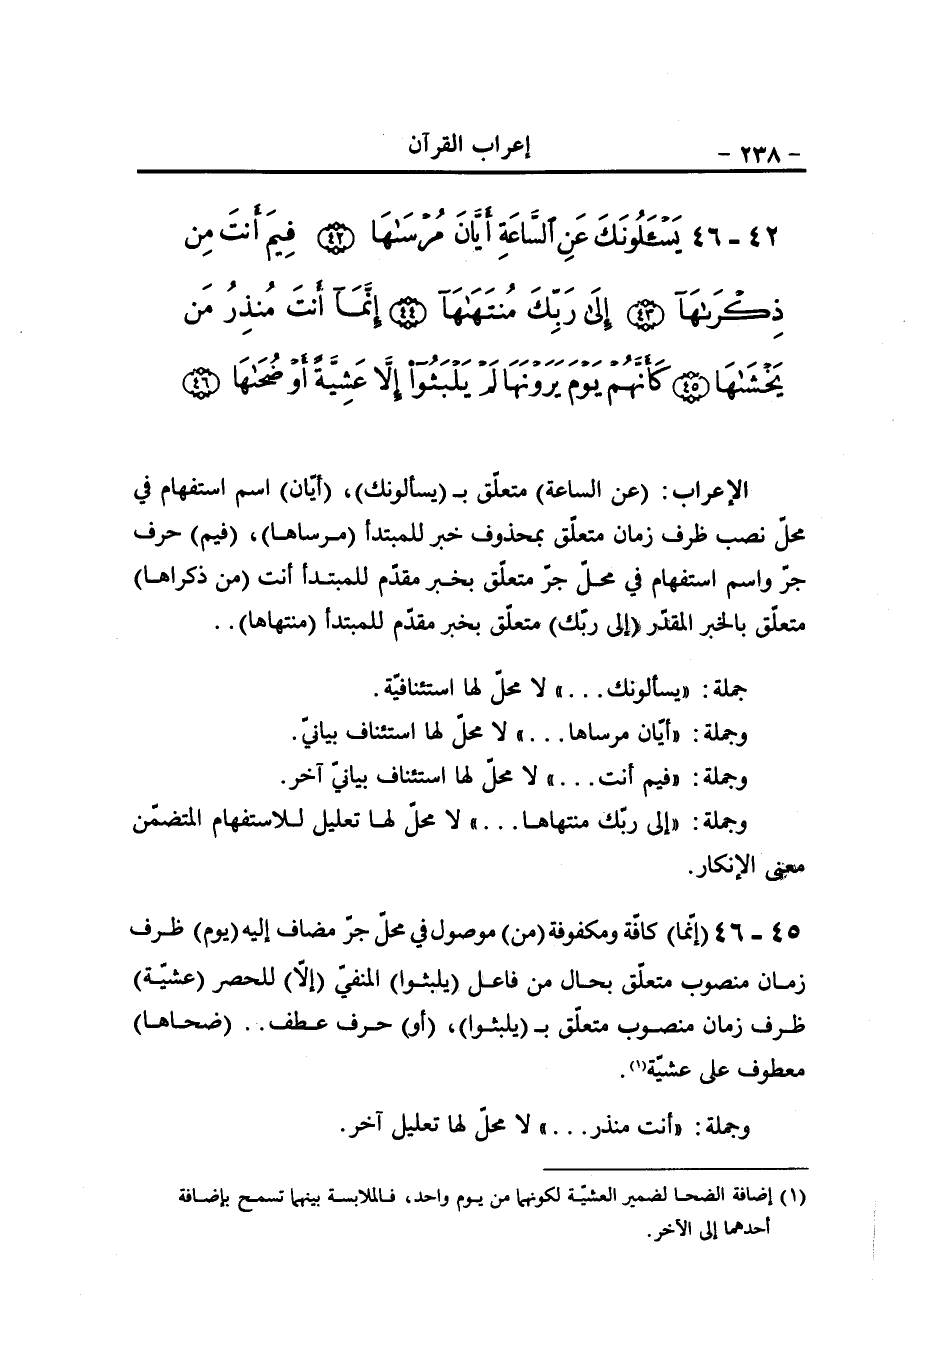 - ٢٣٨ - إعراب القرآن
٤٢ - ٤٦ يَسْـَٔلُونَكَ عَنِ ٱلسَّاعَةِ أَيَّانَ مُرْسَىٰهَا ﴿٤٢﴾ فِيمَ أَنتَ مِن
ذِكْرَىٰهَآ ﴿٤٣﴾ إِلَىٰ رَبِّكَ مُنتَهَىٰهَآ ﴿٤٤﴾ إِنَّمَآ أَنتَ مُنذِرُ مَن
يَخْشَىٰهَا ﴿٤٥﴾ كَأَنَّهُمْ يَوْمَ يَرَوْنَهَا لَمْ يَلْبَثُوٓا۟ إِلَّا عَشِيَّةً أَوْ ضُحَىٰهَا ﴿٤٦﴾
الإعراب: (عن الساعة) متعلّق بـ (يسألونك)، (أيّان) اسم استفهام في
محلّ نصب ظرف زمان متعلّق بمحذوف خبر للمبتدأ (مرساها)، (فيم) حرف
جرّ واسم استفهام في محلّ جرّ متعلّق بخبر مقدّم للمبتدأ أنت (من ذكراها)
متعلّق بالخبر المقدّر (إلى ربّك) متعلّق بخبر مقدّم للمبتدأ (منتهاها)..
جملة: «يسألونك...» لا محلّ لها استئنافيّة.
وجملة: «أيّان مرساها...» لا محلّ لها استئناف بيانيّ.
وجملة: «فيم أنت...» لا محلّ لها استئناف بيانيّ آخر.
وجملة: «إلى ربّك منتهاها...» لا محلّ لها تعليل للاستفهام المتضمّن
معنى الإنكار.
٤٥ - ٤٦ (إنّما) كافّة ومكفوفة (من) موصول في محلّ جرّ مضاف إليه (يوم) ظرف
زمان منصوب متعلّق بحال من فاعل (يلبثوا) المنفيّ (إلّا) للحصر (عشيّة)
ظرف زمان منصوب متعلّق بـ (يلبثوا)، (أو) حرف عطف.. (ضحاها)
معطوف على عشيّة(١).
وجملة: «أنت منذر...» لا محلّ لها تعليل آخر.
(١) إضافة الضحا لضمير العشيّة لكونهما من يوم واحد، فالملابسة بينهما تسمح بإضافة
أحدهما إلى الآخر.